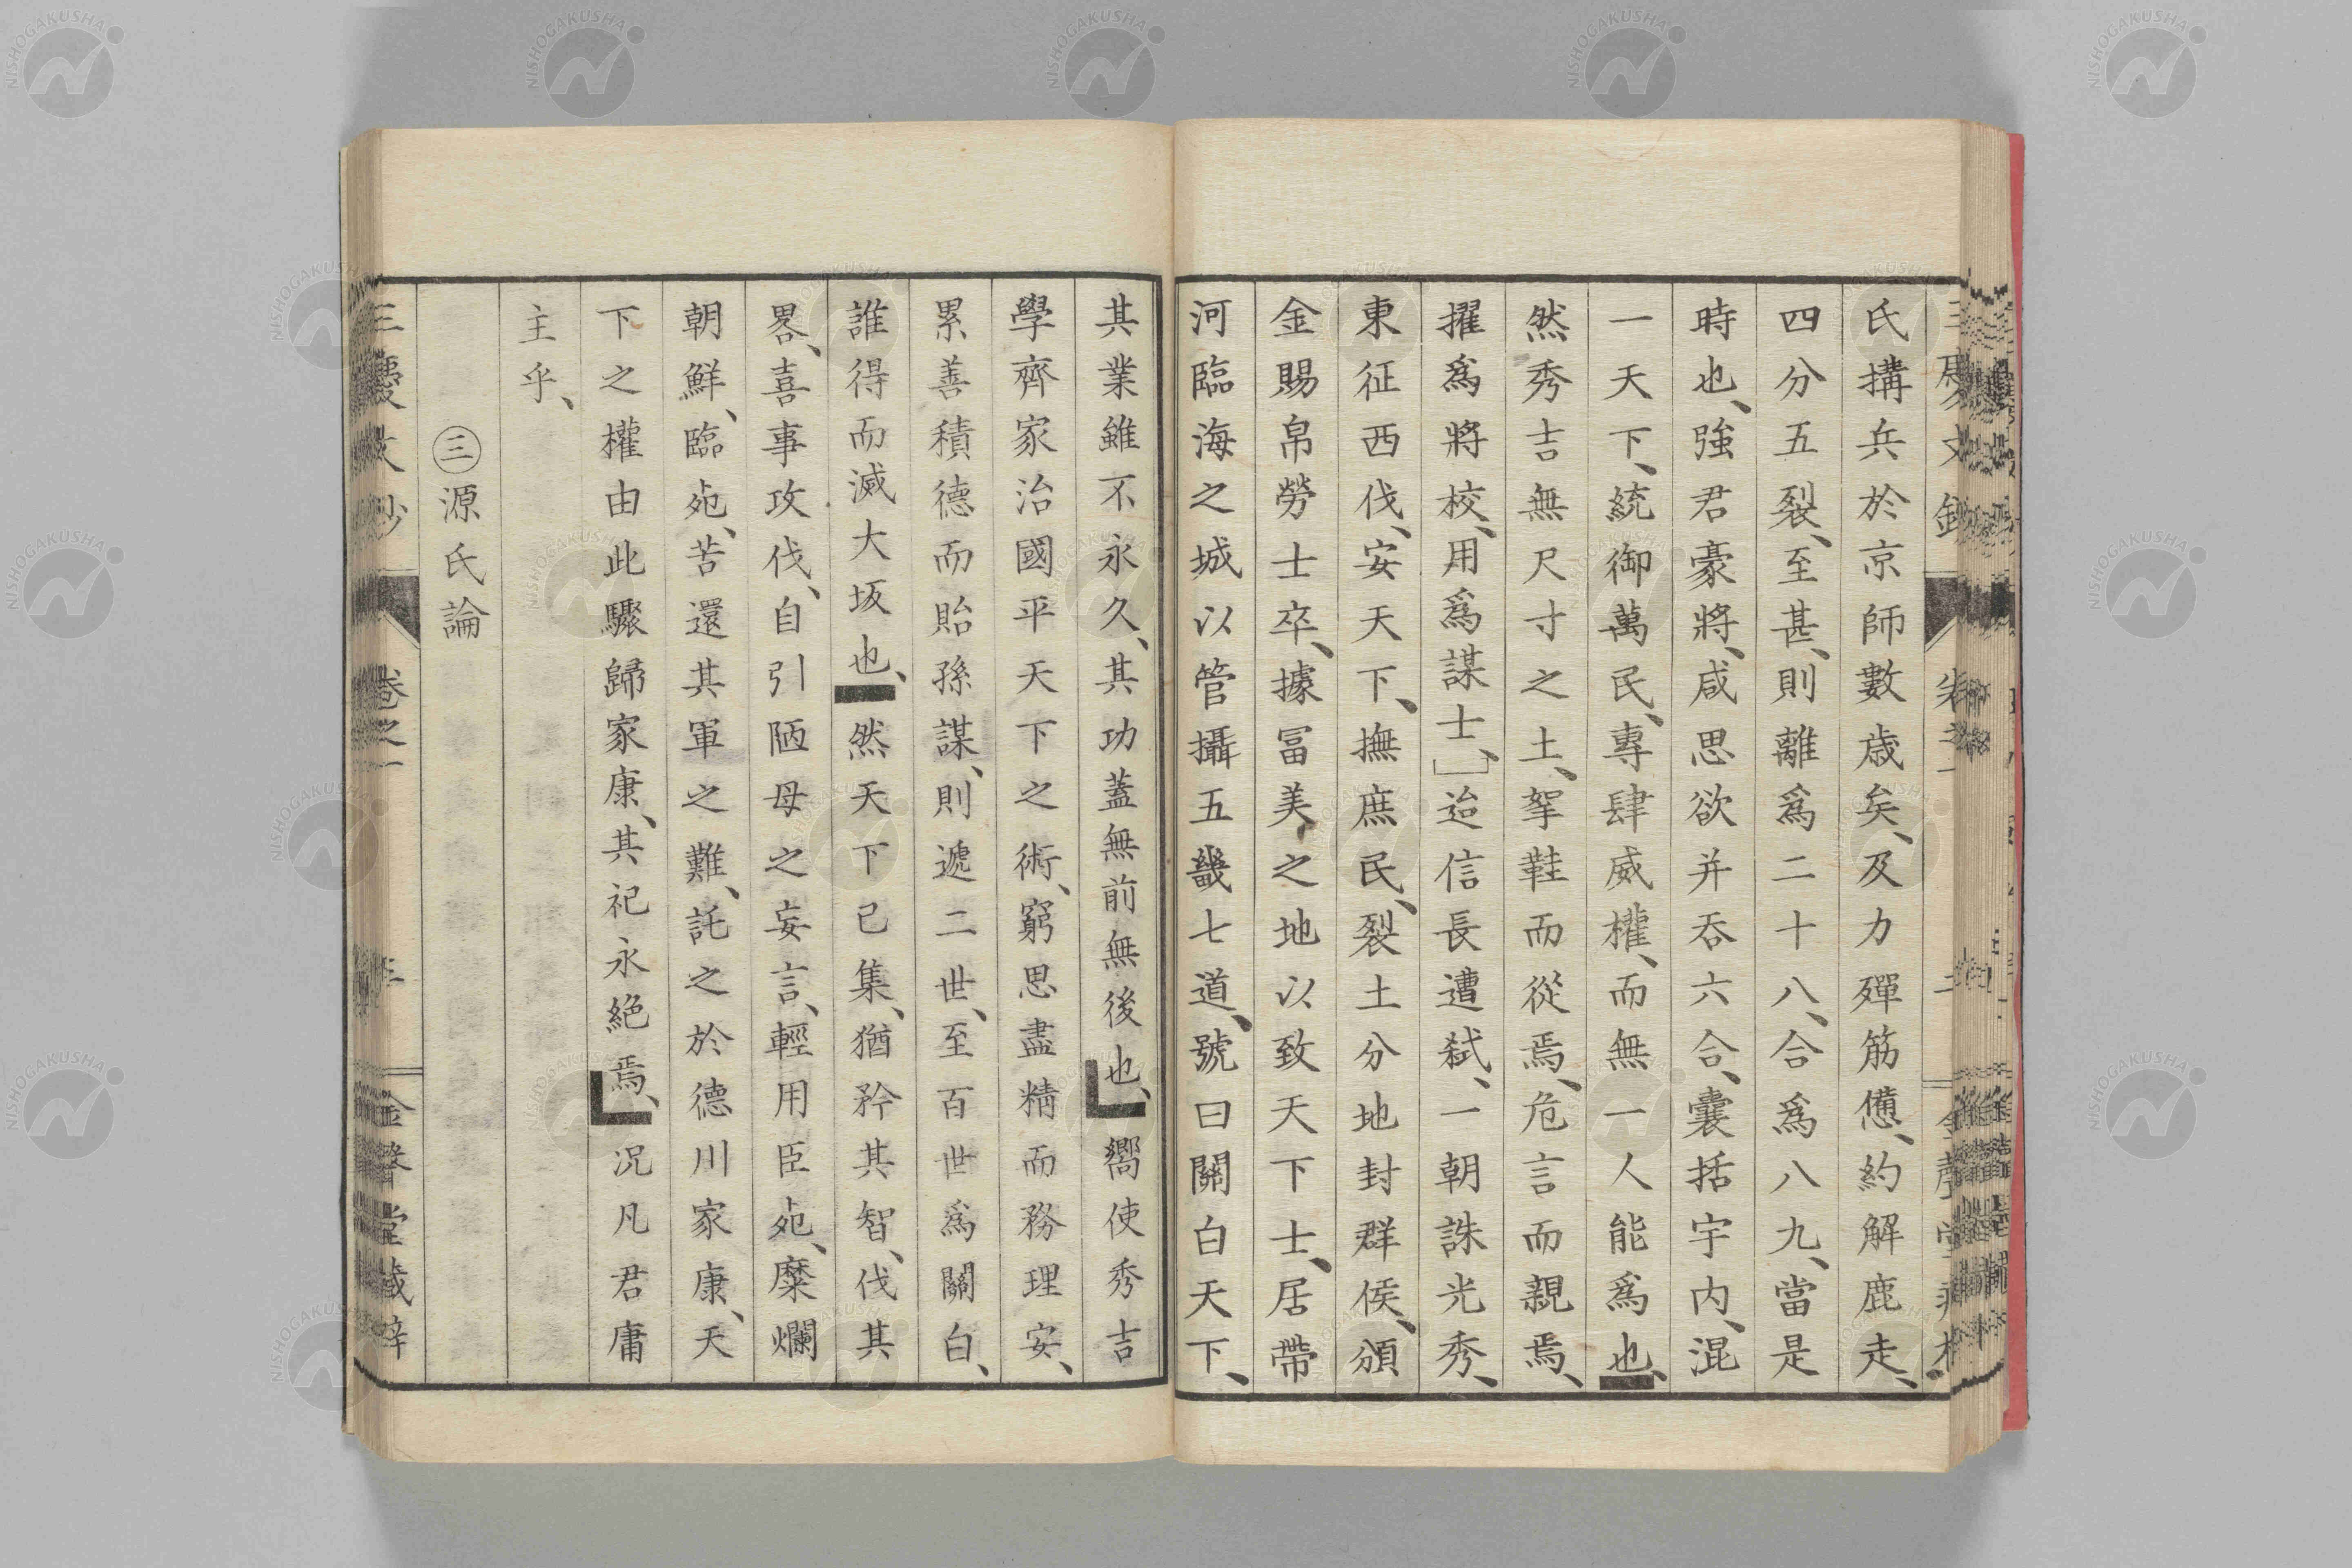 氏搆兵於京師數歳矣、及力殫筋憊、約解鹿走、
四分五裂、至甚、則離爲二十八、合爲八九、當是
時也、強君豪將、咸思欲并吞六合、囊括宇内、混
一天下、統御萬民、專肆威權、而無一人能爲也、
然秀吉無尺寸之土、挐鞋而從焉、危言而親焉、
擢爲將校、用爲謀士、」迨信長遭弑、一朝誅光秀、
東征西伐、安天下、撫庶民、裂土分地封群侯、頒
金賜帛勞士卒、據冨美之地以致天下士、居帶
河臨海之城以管攝五畿七道、號曰關白天下、
其業雖不永久、其功蓋無前無後也、嚮使秀吉
學齊家治國平天下之術、窮思盡精而務理安、
累善積德而貽孫謀、則遞二世、至百世爲關白、
誰得而滅大坂也、然天下已集、猶矜其智、伐其
畧、喜事攻伐、自引陋母之妄言、輕用臣宛、糜爛
朝鮮、臨宛、苦還其軍之難、託之於德川家康、天
下之權由此驟歸家康、其祀永絕焉、况凡君庸
主乎、
㊂源氏論
三慶文鈔 卷之一 金聲堂藏梓
NISHOGAKUSHA